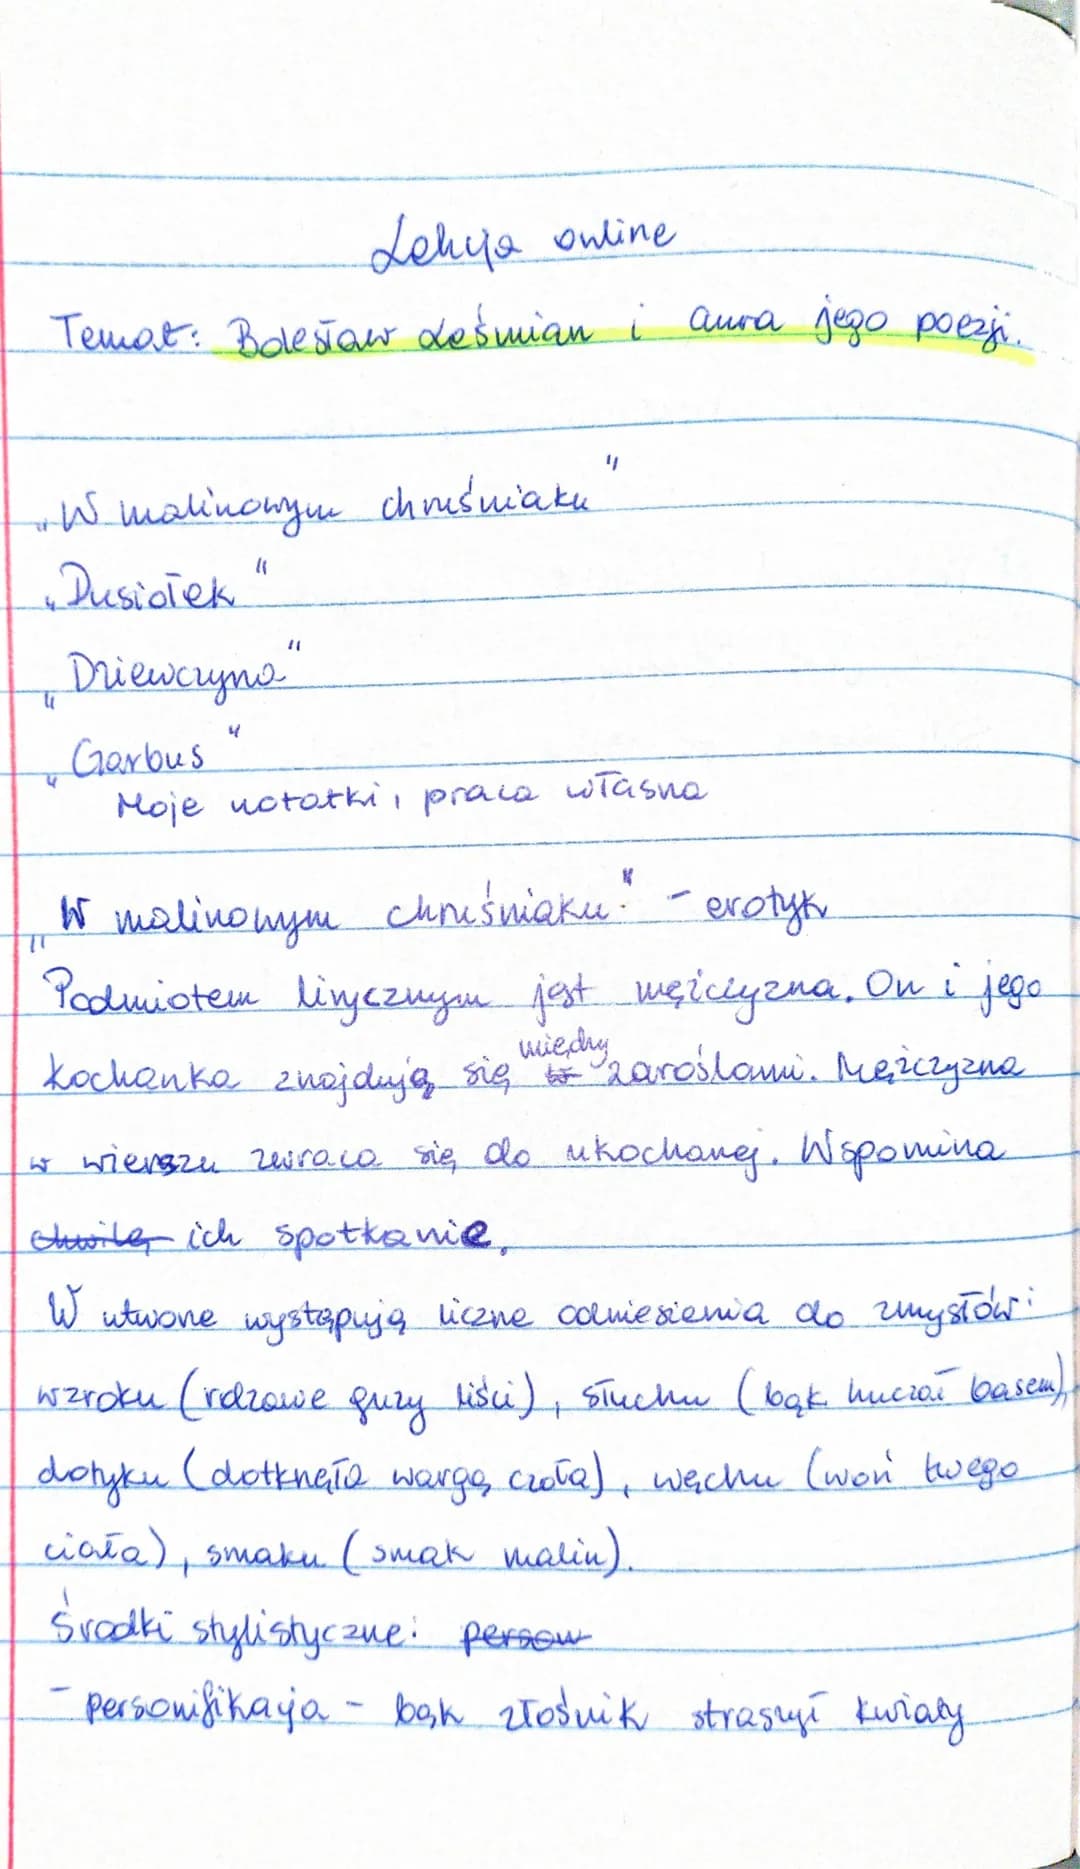 Lekcja online
Temat: Bolesław Leśmian i aura jego poezji.
„W malinowym chruśniaku"
„Dusiołek"
„Dziewczyna"
„Garbus"
Moje notatki, praca własna
„W malinowym chruśniaku." - erotyk
Podmiotem lirycznym jest mężczyzna. On i jego
kochanka znajdują się między zaroślami. Mężczyzna
w wierszu zwraca się do ukochanej. Wspomina
chwilę ich spotkanie.
W utworze występują liczne odniesienia do zmysłów:
wzroku (rdzawe guzy liści), słuchu (bąk huczał basem),
dotyku (dotknęła wargą czoła), węchu (woń twego
ciała), smaku (smak malin).
Środki stylistyczne: person
- personifikacja - bąk złośnik straszył kwiaty